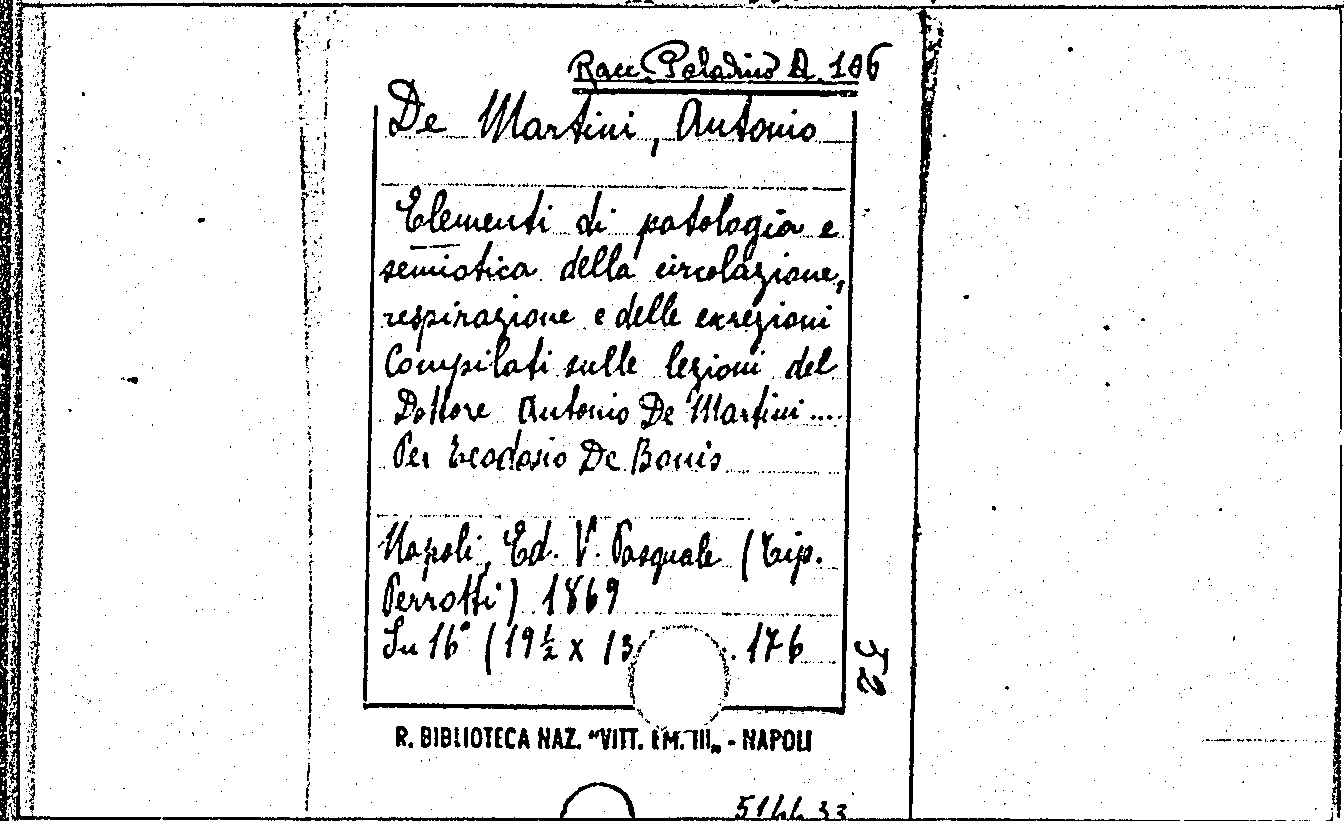 Racc. Paladino A. 106
De Martini, Antonio
Elementi di patologia e
semiotica della circolazione,
respirazione e delle escrezioni
Compilati sulle lezioni del
Dottore Antonio De Martini....
Per Teodosio De Bonis
Napoli, Ed. V. Pasquale (Tip.
Perrotti) 1869
In 16° (19½ x 13 . 176
52
R. BIBLIOTECA NAZ. “VITT. EM. III„ - NAPOLI